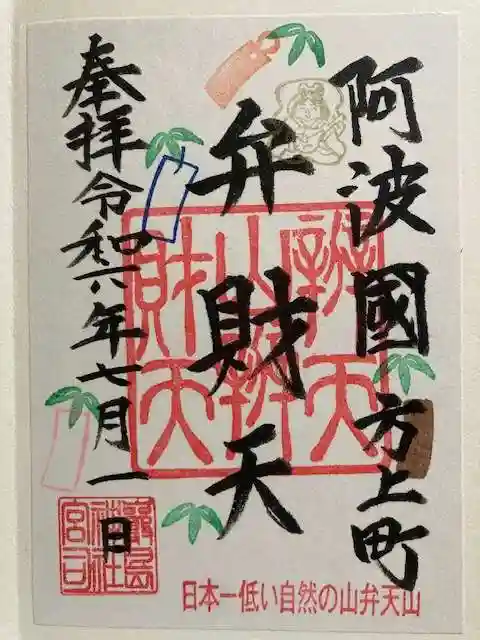 阿波國方上町
弁財天
奉拝令和六年七月一日
辯天
山辨
財天
嚴島
神社
宮司
日本一低い自然の山弁天山